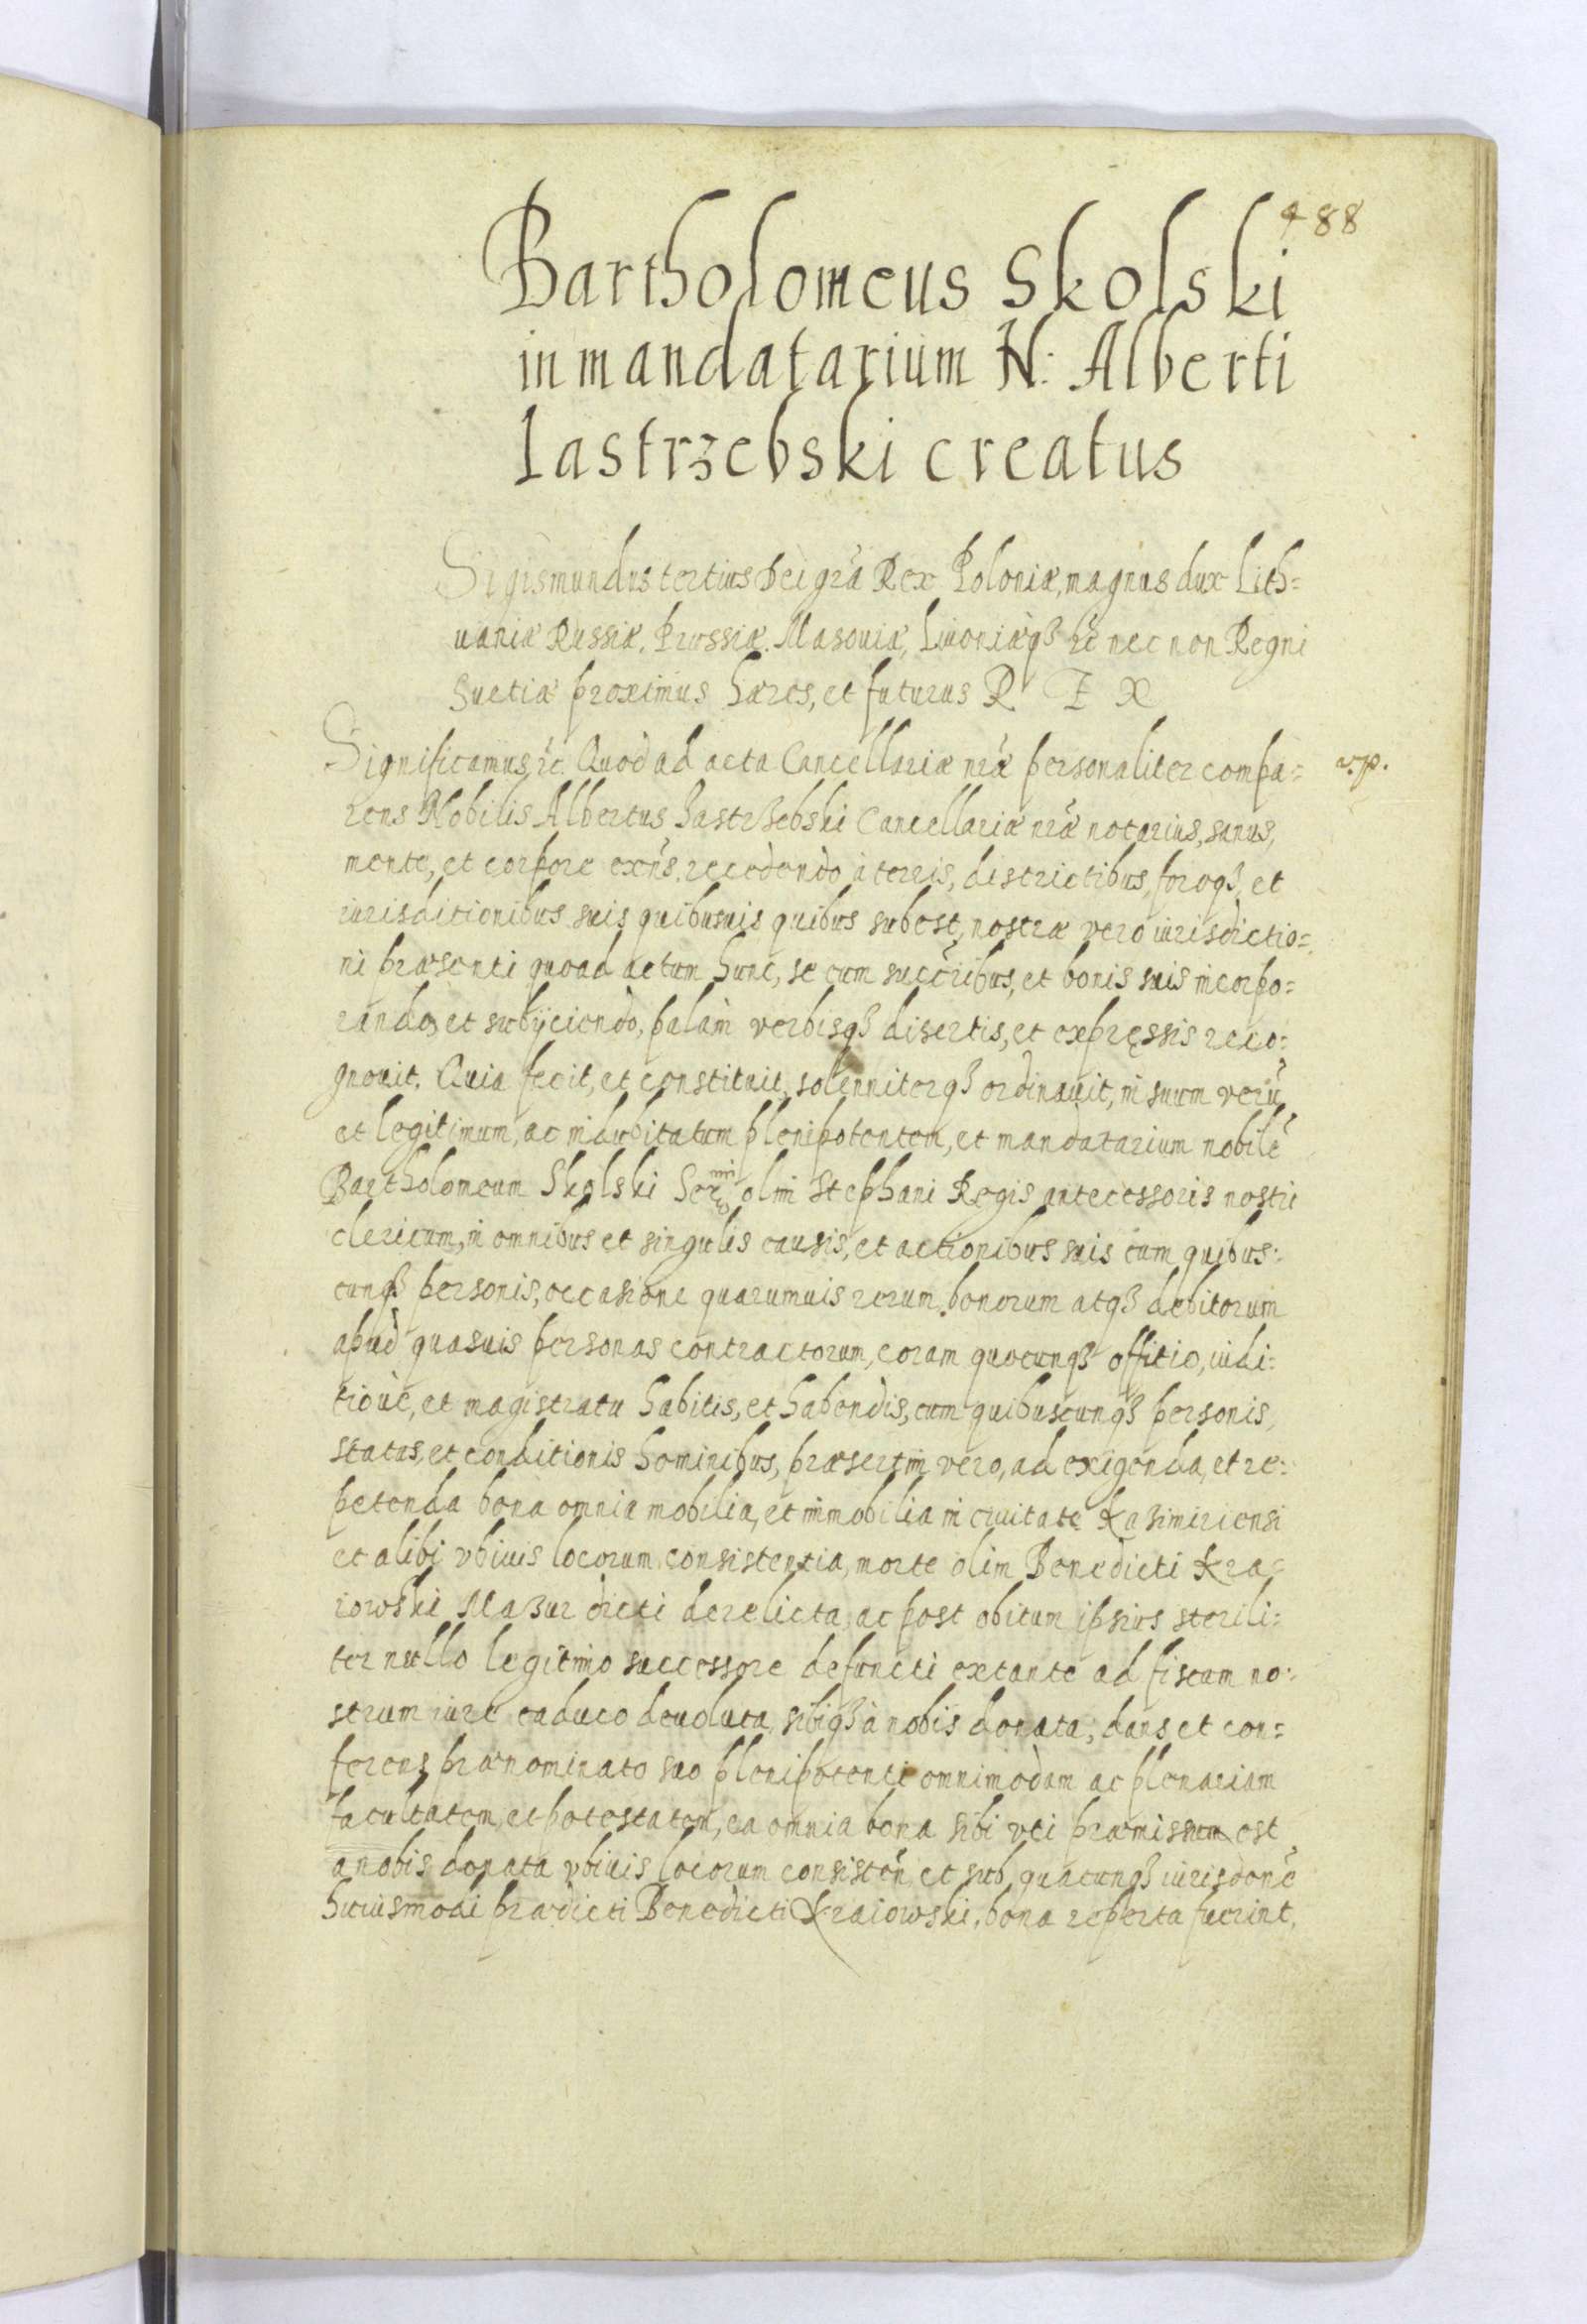 488
Bartholomeus Skolski
in mandatarium N: Alberti
Iastrzebski creatus
Sigismundus tertius Dei grã Rex Poloniæ, magnus dux Lith=
uaniæ Russiæ, Prussiæ. Masouiæ, Liuoniæq₃ ꝛc̃ nec non Regni
Suetiæ proximus hæres, et futurus R E X
Significamus ꝛc̃. Quod ad acta Cancellariæ nr̃æ personaliter compa=
rens Nobilis Albertus Jastrzebski Cancellariæ nr̃æ notarius, sanus,
mente, et corpore exñs. recedendo à terris, districtibus, foroq₃, et
iurisditionibus suis quibusuis quibus subest, nostræ vero iurisdictio=
ni præsenti quoad actum hunc, se cum succr̃ibus, et bonis suis incorpo=
rando, et subijciendo, palàm verbisq₃ disertis, et expręssis reco=
gnouit. Quia fecit, et constituit, solenniterq₃ ordinauit, in suum verũ
et legitimum, ac indubitatum plenipotentem, et mandatarium nobilẽ
Bartholomeum Skolski Ser^mi olim Stephani Regis antecessoris nostri
clericum, in omnibus et singulis causis, et actionibus suis cum quibus=
cunq₃ personis, occasione quarumuis rerum bonorum atq₃ debitorum
apud quasuis personas contractorum, coram quocunq₃ offitio, iudi=
tioue, et magistratu habitis, et habendis, cum quibuscunq₃ personis,
status, et conditionis hominibus, præsertim vero, ad exigenda, et re=
petenda bona omnia mobilia, et immobilia in ciuitate Kasimiriensi
et alibi vbiuis locorum consistentia, morte olim Benedicti Kra=
iowski Mazur dicti derelicta, ac post obitum ipsius sterili=
ter nullo legitimo successore defuncti extante ad fiscum no=
strum iure caduco deuoluta, sibiq₃ à nobis donata; dans et con=
ferens prænominato suo plenipotenti omnimodam ac plenariam
facultatem, et potestatem, ea omnia bona sibi vti præmissum est
a nobis donata vbiuis locorum consisteñ et sub quacunq₃ iurisdonẽ
huiusmodi prædicti Benedicti Kraiowski, bona reperta fuerint,